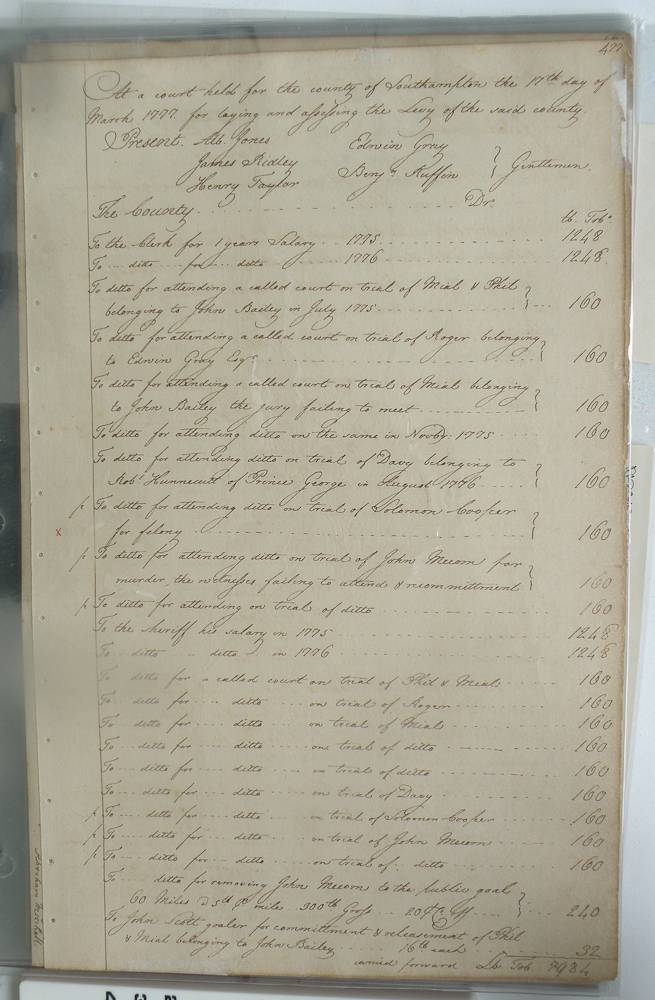 477
At a court held for the county of Southampton the 17th day of
March 1777. for laying and assessing the Levy of the said county
Present. Alb. Jones Edwin Gray
James Ridley Benjn Ruffin } Gentlemen.
Henry Taylor
The County Dr.
lb. Tobo
To the Clerk for 1 years Salary 1775 1248
To ditto for ditto 1776 1248
To ditto for attending a called court on trial of Mial & Phil
belonging to John Bailey in July 1775 } 160
To ditto for attending a called court on trial of Roger belonging
to Edwin Gray Esqr } 160
To ditto for attending a called court on trial of Mial belonging
to John Bailey the jury failing to meet } 160
To ditto for attending ditto on the same in Novbr. 1775 160
To ditto for attending ditto on trial of Davy belonging to
Robt Hunnicutt of Prince George in August 1776 } 160
p To ditto for attending ditto on trial of Solomon Cooper
x for felony } 160
p To ditto for attending ditto on trial of John Mecom for
murder, the witnesses failing to attend & recommittment } 160
p To ditto for attending on trial of ditto 160
To the sheriff his salary in 1775 1248
To ditto ditto in 1776 1248
To ditto for a called court on trial of Phil & Meal 160
To ditto for ditto on trial of Roger 160
To ditto for ditto on trial of Mial 160
To ditto for ditto on trial of ditto 160
To ditto for ditto on trial of ditto 160
To ditto for ditto on trial of Davy 160
p To ditto for ditto on trial of Solomon Cooper 160
p To ditto for ditto on trial of John Mecom 160
p To ditto for ditto on trial of ditto 160
To ditto for removing John Mecom to the public goal
60 Miles mile 300th Gross } 240
To John Scott goaler for committment & releasement of Phil
& Mial belonging to John Bailey each 32
carried forward Lb Tob 8984